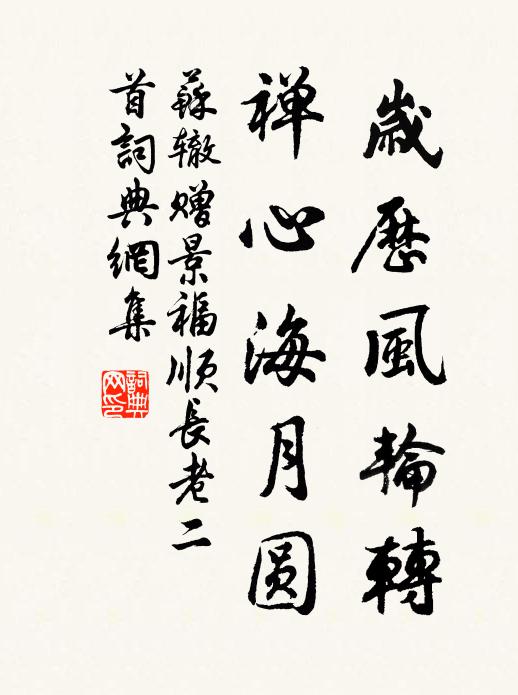 歲歷風輪轉
禅心海月圆
蘇辙赠景福顺長老二
首詞典網集
詞典
网印